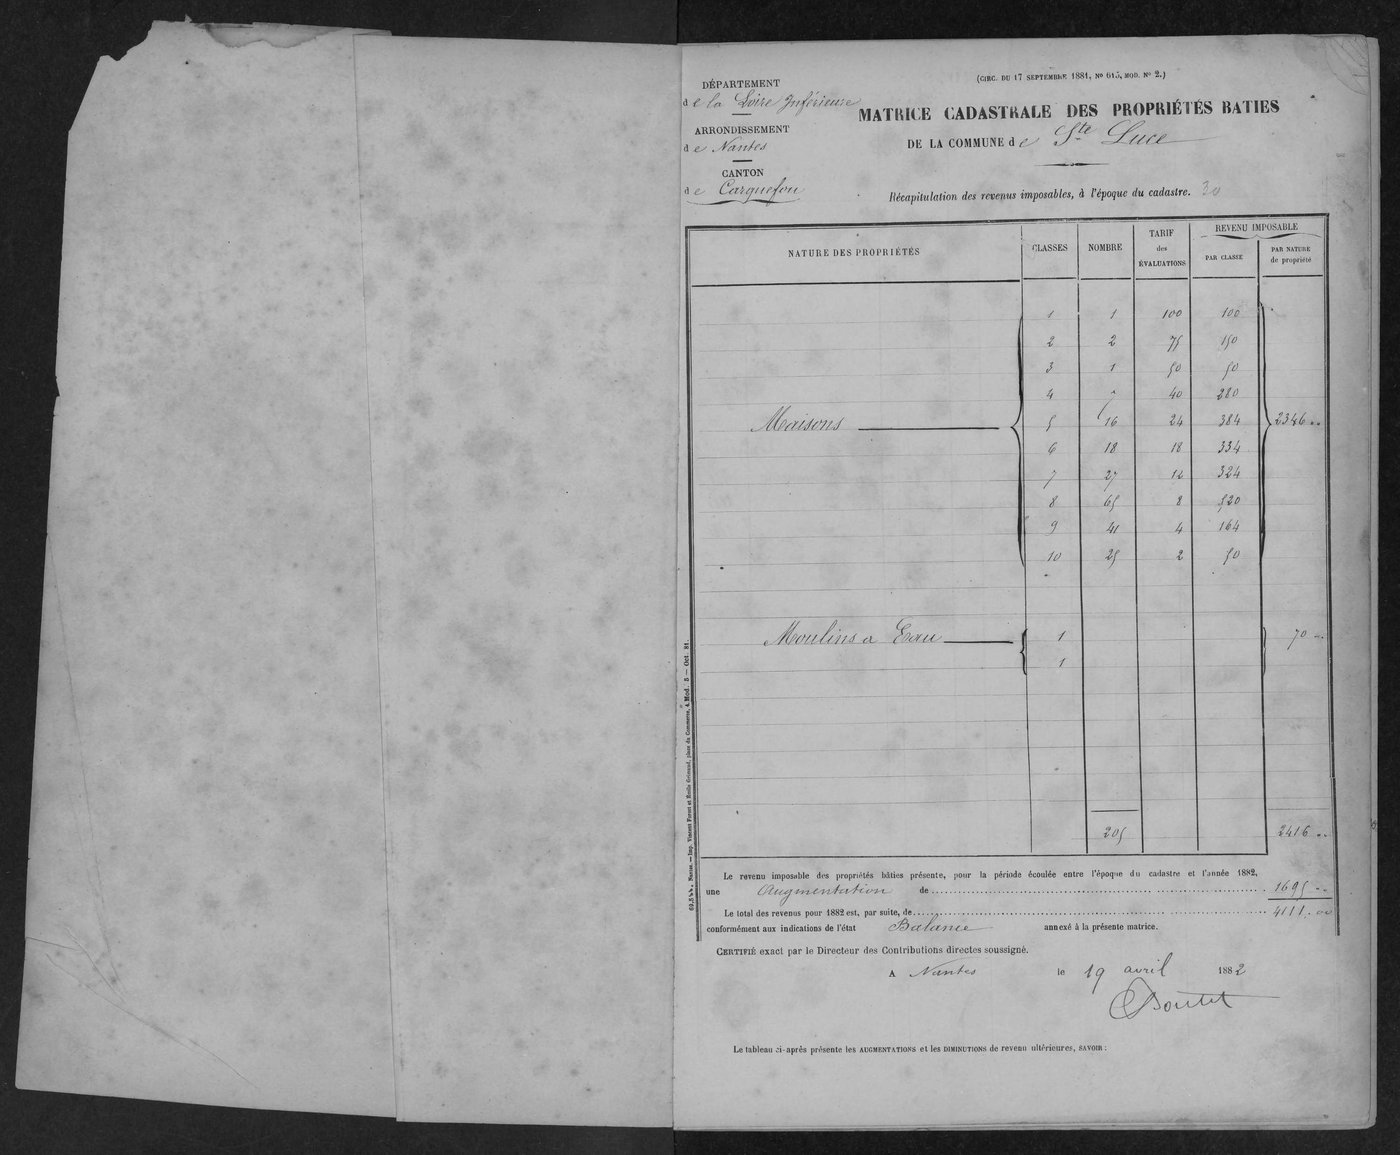 DÉPARTEMENT
de la Loire Inférieure
ARRONDISSEMENT
de Nantes
CANTON
de Carquefou
(CIRC. DU 17 SEPTEMBRE 1881, No 615, MOD. No 2.)
MATRICE CADASTRALE DES PROPRIÉTÉS BATIES
DE LA COMMUNE de Ste Luce
Récapitulation des revenus imposables, à l'époque du cadastre. 30
NATURE DES PROPRIÉTÉS CLASSES NOMBRE TARIF des ÉVALUATIONS REVENU IMPOSABLE PAR CLASSE PAR NATURE de propriété
1 1 100 100
2 2 75 150
3 1 50 50
4 7 40 280
Maisons 5 16 24 384 2346 "
6 18 18 334
7 27 12 324
8 65 8 520
9 41 4 164
10 25 2 50
Moulins a Eau 1 70 "
1
205 2416 "
Le revenu imposable des propriétés bâties présente, pour la période écoulée entre l'époque du cadastre et l'année 1882,
une Augmentation de 1695 "
Le total des revenus pour 1882 est, par suite, de 4111.00
conformément aux indications de l'état Balance annexé à la présente matrice.
CERTIFIÉ exact par le Directeur des Contributions directes soussigné.
A Nantes le 19 avril 1882
Le tableau ci-après présente les AUGMENTATIONS et les DIMINUTIONS de revenu ultérieures, SAVOIR :
Nantes. — Imp. Vincent Forest et Emile Grimaud, place du Commerce, 4. Mod. 5 — Oct. 81.